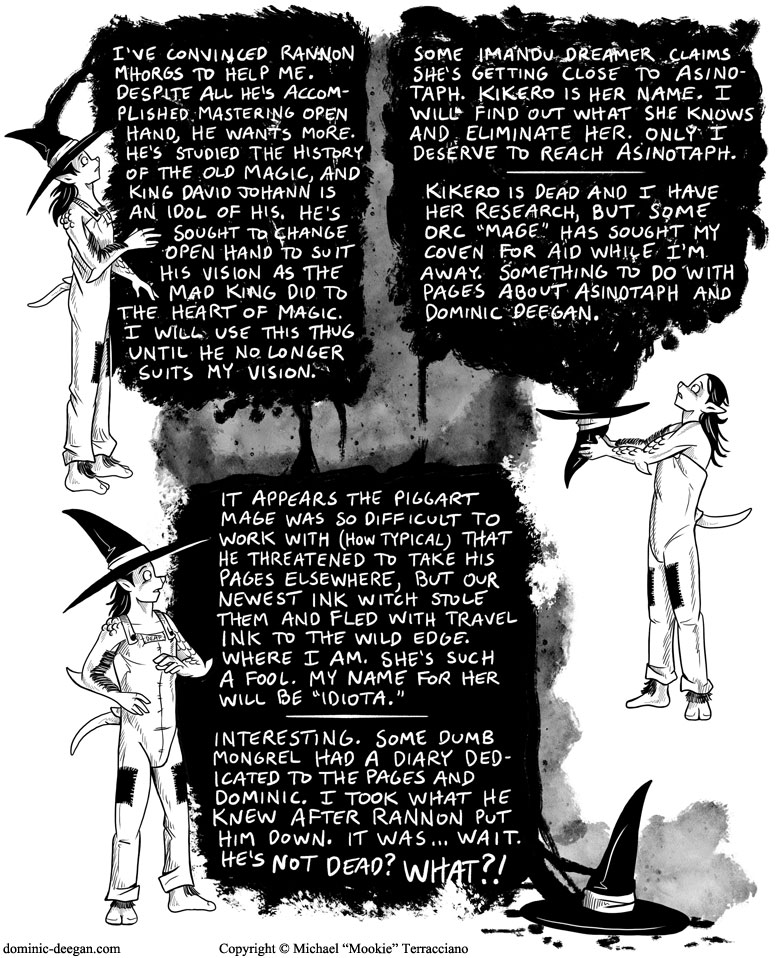 I'VE CONVINCED RANNON
MHORGS TO HELP ME.
DESPITE ALL HE'S ACCOM-
PLISHED MASTERING OPEN
HAND, HE WANTS MORE.
HE'S STUDIED THE HISTORY
OF THE OLD MAGIC, AND
KING DAVID JOHANN IS
AN IDOL OF HIS. HE'S
SOUGHT TO CHANGE
OPEN HAND TO SUIT
HIS VISION AS THE
MAD KING DID TO
THE HEART OF MAGIC.
I WILL USE THIS THUG
UNTIL HE NO LONGER
SUITS MY VISION.
SOME IMANDU DREAMER CLAIMS
SHE'S GETTING CLOSE TO ASINO-
TAPH. KIKERO IS HER NAME. I
WILL FIND OUT WHAT SHE KNOWS
AND ELIMINATE HER. ONLY I
DESERVE TO REACH ASINOTAPH.
KIKERO IS DEAD AND I HAVE
HER RESEARCH, BUT SOME
ORC "MAGE" HAS SOUGHT MY
COVEN FOR AID WHILE I'M
AWAY. SOMETHING TO DO WITH
PAGES ABOUT ASINOTAPH AND
DOMINIC DEEGAN.
IT APPEARS THE PIGGART
MAGE WAS SO DIFFICULT TO
WORK WITH (HOW TYPICAL) THAT
HE THREATENED TO TAKE HIS
PAGES ELSEWHERE, BUT OUR
NEWEST INK WITCH STOLE
THEM AND FLED WITH TRAVEL
INK TO THE WILD EDGE.
WHERE I AM. SHE'S SUCH
A FOOL. MY NAME FOR HER
WILL BE "IDIOTA."
DEAD
INTERESTING. SOME DUMB
MONGREL HAD A DIARY DED-
ICATED TO THE PAGES AND
DOMINIC. I TOOK WHAT HE
KNEW AFTER RANNON PUT
HIM DOWN. IT WAS... WAIT.
HE'S NOT DEAD? WHAT?!
dominic-deegan.com
Copyright © Michael "Mookie" Terracciano